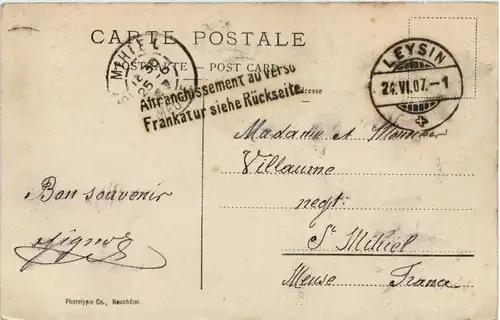 CARTE POSTALE
POSTKARTE — POST CARD
Affranchissement au Verso
Frankatur siehe Rückseite.
LEYSIN
24.VI.07.–1
St MIHIEL
MEUSE
Adresse
Madame et Monsieur
Villaume
negt.
St Mihiel
Meuse France
Bon souvenir
Phototypie Co., Neuchâtel